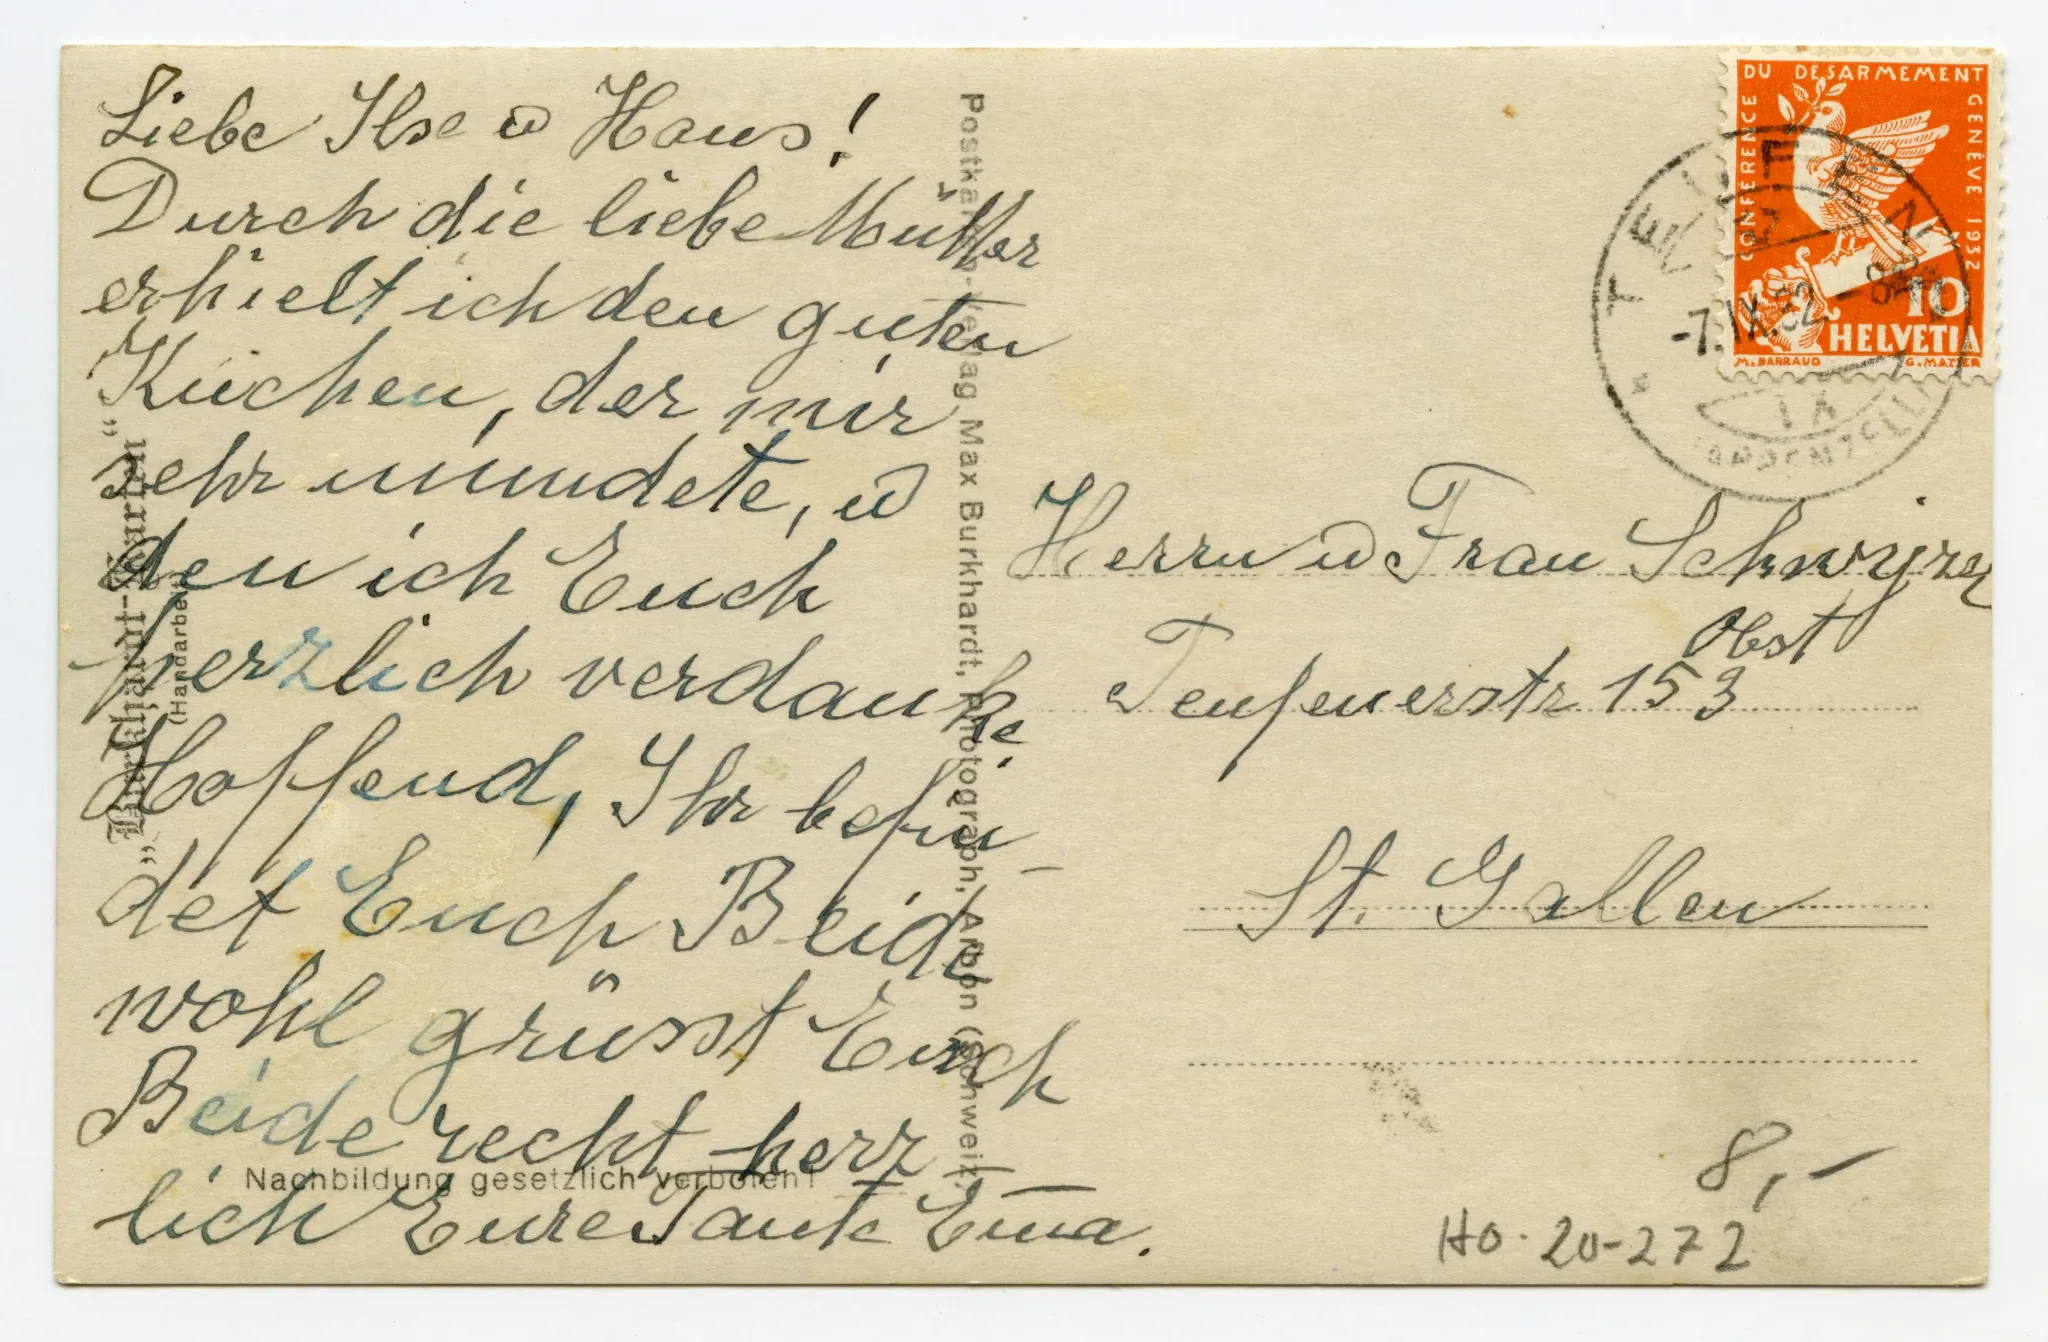 Liebe Ilse u Hans!
Durch die liebe Mutter
erhielt ich den guten
Kuchen, der mir
sehr mundete, u
den ich Euch
herzlich verdanke.
Hoffend, Ihr befin-
det Euch Beide
wohl grüsst Euch
Beide recht herz-
lich Eure Tante Ema.
Herrn u Frau Schwyzer
Obst
Teufenerstr 153
St. Gallen
8,-
HO-20-272
CONFERENCE DU DESARMEMENT GENÈVE 1932
10
HELVETIA
M. BARRAUD G. MATTER
-7.IX.32
"Burkhardt-Karten"
(Handarbeit)
Postkarten-Verlag Max Burkhardt, Photograph, Arbon (Schweiz)
Nachbildung gesetzlich verboten!